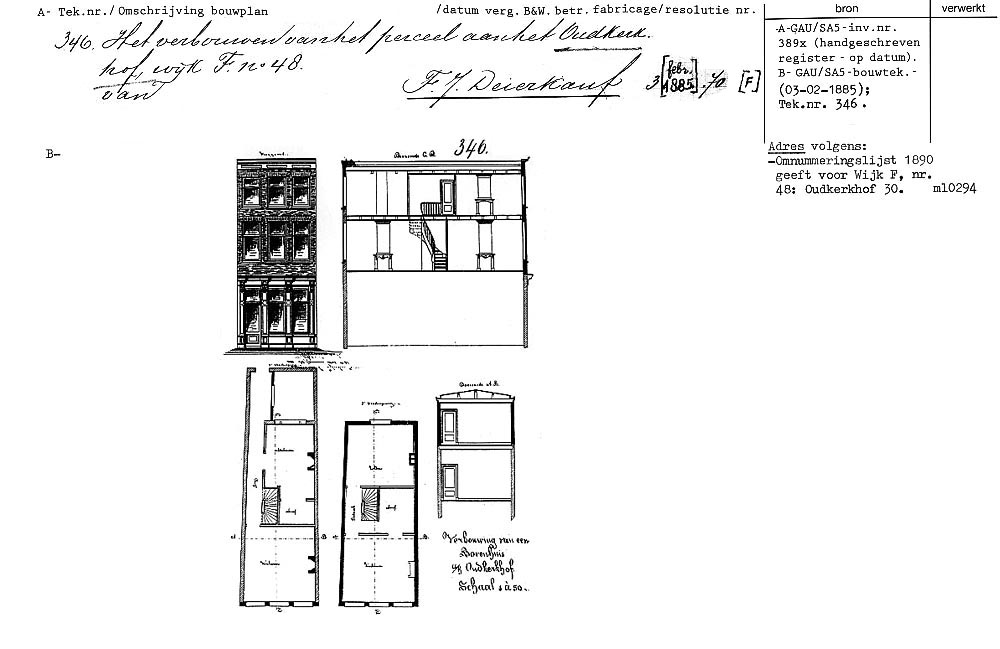 A- Tek.nr./Omschrijving bouwplan
/datum verg. B&W. betr. fabricage/resolutie nr.
bron
verwerkt
346. Het verbouwen van het perceel aan het Oudkerk-
hof, wijk F. no 48.
van
F. J. Deierkauf
3 [febr. 1885] 70 [F]
-A-GAU/SA5-inv.nr.
389x (handgeschreven
register - op datum).
B- GAU/SA5-bouwtek.-
(03-02-1885);
Tek.nr. 346.
Adres volgens:
-Omnummeringslijst 1890
geeft voor Wijk F, nr.
48: Oudkerkhof 30. ml0294
B-
Doorsnede C.D.
346.
Doorsnede A.B.
Verbouwing van een
Bovenhuis
Oudkerkhof
Schaal 1 à 50.